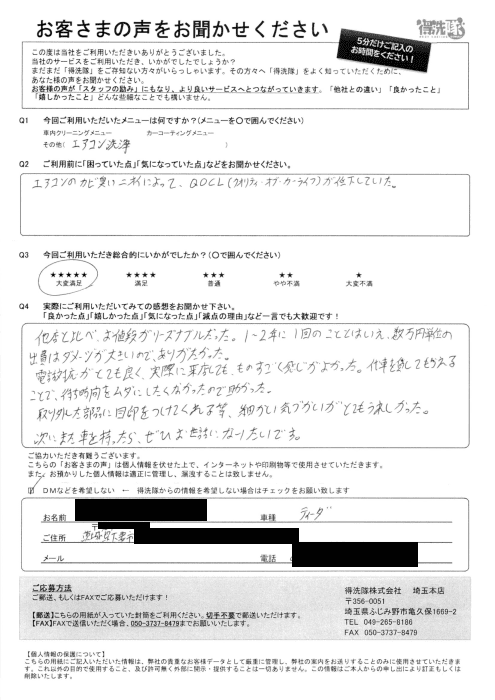 お客さまの声をお聞かせください
得洗隊
5分だけご記入の
お時間をください！
この度は当社をご利用いただきありがとうございました。
当社のサービスをご利用いただき、いかがでしたでしょうか？
まだまだ「得洗隊」をご存知ない方々がいらっしゃいます。その方々へ「得洗隊」をよく知っていただくために、
あなた様の声をお聞かせください。
お客様の声が「スタッフの励み」にもなり、より良いサービスへとつながっていきます。「他社との違い」「良かったこと」
「嬉しかったこと」どんな些細なことでも構いません。
Q1 今回ご利用いただいたメニューは何ですか？（メニューを〇で囲んでください）
車内クリーニングメニュー カーコーティングメニュー
その他（ エアコン洗浄 ）
Q2 ご利用前に「困っていた点」「気になっていた点」などをお聞かせください。
エアコンのカビ臭いニオイによって、QOCL（クオリティ・オブ・カーライフ）が低下していた。
Q3 今回ご利用いただき総合的にいかがでしたか？（〇で囲んでください）
★★★★★ ★★★★ ★★★ ★★ ★
大変満足 満足 普通 やや不満 大変不満
Q4 実際にご利用いただいてみての感想をお聞かせ下さい。
「良かった点」「嬉しかった点」「気になった点」「減点の理由」など一言でも大歓迎です！
他店と比べ、お値段がリーズナブルだった。1〜2年に1回のこととはいえ、数万円単位の
出費はダメージが大きいので、ありがたかった。
電話対応がとても良く、実際に来店しても、ものすごく感じがよかった。代車を貸してもらえる
ことで、待ち時間をムダにしたくなかったので助かった。
取り外した部品に目印をつけてくれる等、細かい気づかいがとてもうれしかった。
次にまた車を持ったら、ぜひお世話になりたいです。
ご協力いただき有難うございます。
こちらの「お客さまの声」は個人情報を伏せた上で、インターネットや印刷物等で使用させていただきます。
また、お預かりした個人情報は適正に管理し、漏洩することは致しません。
DMなどを希望しない ← 得洗隊からの情報を希望しない場合はチェックをお願い致します
お名前 車種 ティーダ
〒
ご住所
メール 電話
ご応募方法
ご郵送、もしくはFAXでご応募いただけます！
【郵送】こちらの用紙が入っていた封筒をご利用ください。切手不要で郵送いただけます。
【FAX】FAXで送信いただく場合、050-3737-8479までお願いいたします。
得洗隊株式会社 埼玉本店
〒356-0051
埼玉県ふじみ野市亀久保1669-2
TEL 049-265-8186
FAX 050-3737-8479
【個人情報の保護について】
こちらの用紙にご記入いただいた情報は、弊社の貴重なお客様データとして厳重に管理し、弊社の案内をお送りすることのみに使用させていただきます。これ以外の目的で使用すること、及び許可無く外部に開示・提供することは一切ありません。この情報はご本人からの申し出により訂正もしくは削除いたします。